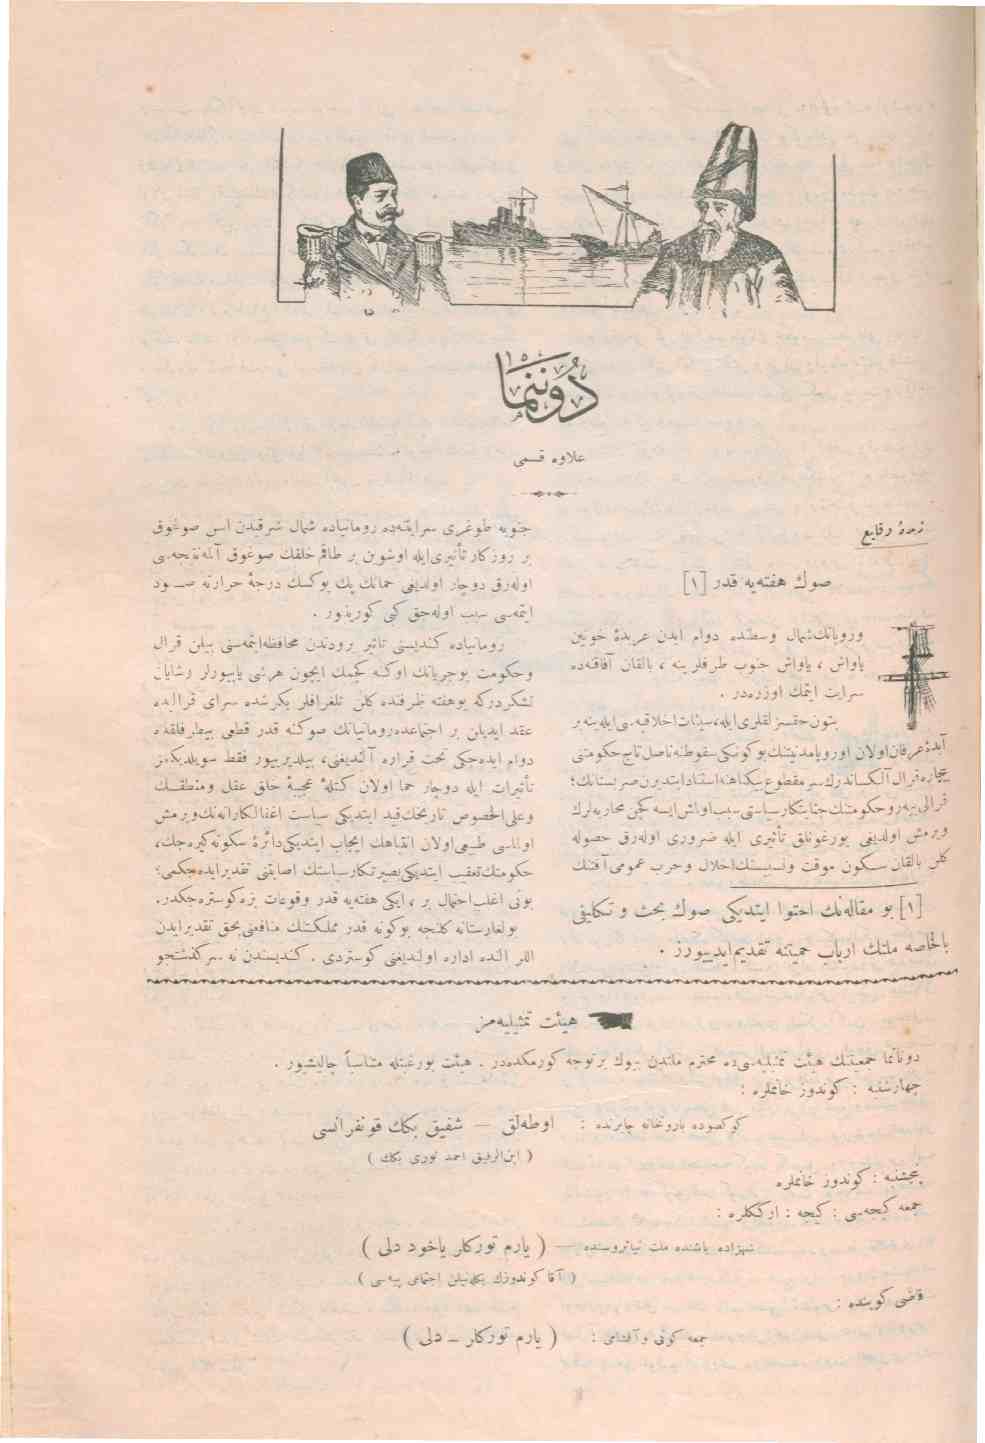 دوننما
علاوه قسمی
زبدهٔ وقایع
صوڭ هفته‌یه قدر [١]
وروپانك شمال وسطنده دوام ایدن عربدهٔ خونین
یاواش ، یاواش جنوب طرفلرینه ، بالقان آفاقنده
سرایت ایتمك اوزره‌در .
بتون حقسزلقلری ایله، سیئات اخلاقیه‌سی ایله ینه بر
آبدهٔ عرفان اولان اوروپا مدنیتنك بوكونكی سقوطنه ناصل تاج حكومتنی
بیچاره قرال آلكساندرك سر مقطوع بیكناهنه استناد ایتدیرن صربستانك؛
قرالی پیه‌رو حكومتنك جنایتكار سیاستی سبب اولمش ایسه كچن محاربه‌لرك
ویرمش اولدیغی یورغونلق تأثیری ایله ضروری اوله‌رق حصوله
كلن بالقان سكون موقت ونسبیسنك اخلال وحرب عمومی آفتنك
[١] بو مقاله‌نك احتوا ایتدیكی صوك بحث و تكلیفی
بالخاصه ملتك ارباب حمیتنه تقدیم ایدییورز .
جنوبه طوغری سرایتنده رومانیاده شمال شرقیدن اسن صوغوق
بر روزكار تأثیری ایله اوشوین بر طاقم خلقك صوغوق آلمه نتیجه‌سی
اوله‌رق دوچار اولدیغی حمانك پك یوكسك درجهٔ حرارته صعود
ایتمه‌سی سبب اوله‌جق كبی كورینور .
رومانیاده كندیسنی تأثیر برودتدن محافظه ایتمه‌سنی بیلن قرال
وحكومت بوجریانك اوكنه كچمك ایچون هرشئی یاپیورلر وشایان
تشكردركه بوهفته ظرفنده كلن تلغرافلر بكرشده سرای قرالیده
عقد ایدیلن بر اجتماعده رومانیانك صوكنه قدر قطعی بیطرفلقده
دوام ایده‌جكی تحت قراره آلندیغنی، بیلدیریور فقط سویلدیكمز
تأثیرات ایله دوچار حما اولان كتلهٔ عجیبهٔ خلق عقل ومنطقك
وعلی الخصوص تاریخك قید ایتدیكی سیاست اغفالكارانه‌نك ویرمش
اولماسی طبیعی اولان انتباهك ایجاب ایتدیكی دائرهٔ سكونه كیره‌جك،
حكومتك تعقیب ایتدیكی بصیرتكار سیاستك اصابتنی تقدیر ایده‌جكمی؛
بونی اغلب احتمال بر ، ایكی هفته‌یه قدر وقوعات بزه كوستره‌جكدر.
بولغارستانه كلنجه بوكونه قدر مملكتنك منافعنی بحق تقدیر ایدن
اللر النده اداره اولندیغنی كوستردی . كندیسندن نه سركذشتجو
هیئت تمثیلیه‌مز
دونانما جمعیتنك هیئت تمثیلیه‌سی ده محترم ملتدن بیوك بر توجه كورمكده‌در . هیئت بورغبتله متناسباً چالیشیور .
چهارشنبه : كوندوز خانملره :
كوكصوده باروتخانه چایرنده : اوطه‌لق — شفیق بكك قونفرانسی
( ابن‌الرفیق احمد نوری بكك )
پنجشنبه : كوندوز خانملره
جمعه كیجه‌سی : كیجه : ارككلره :
شهزاده باشنده ملت تیاتروسنده — ( یارم توركلر یاخود دلی )
( آقا كوندوزك یكی اجتماعی پیه‌سی )
قاضی كوینده :
جمعه كونی وآقشامی : ( یارم توركلر – دلی )